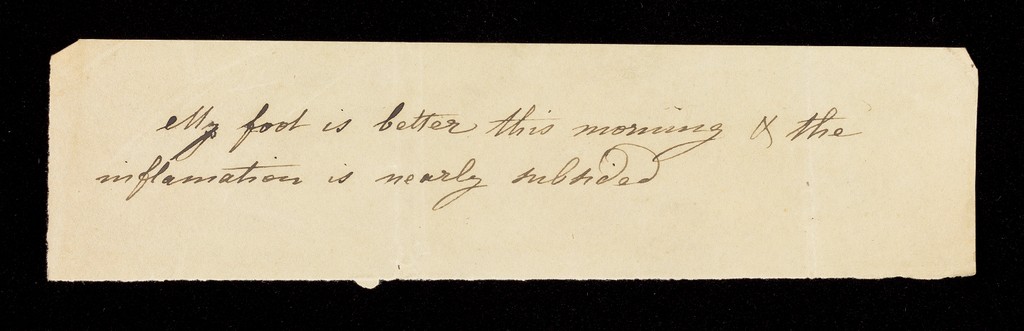 My foot is better this morning & the
inflamation is nearly subsided